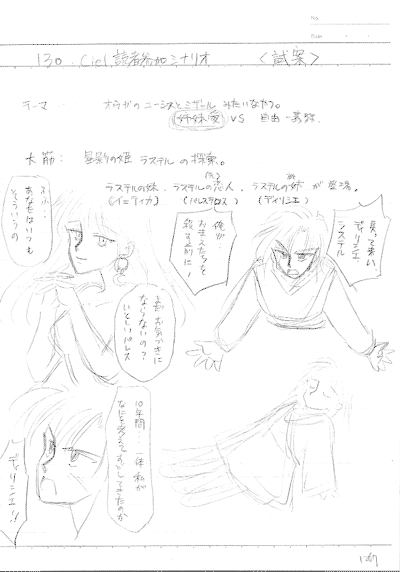 No.
130. Ciel 読者参加シナリオ 〈試案〉
テーマ オウガのニースとミザールみたいなかつ。
姉妹愛 VS 自由
大筋： の姫 ラステル の探索。
ラステルの妹、ラステルの恋人、ラステルの姉 が登場。
(パルステロス) (ディリシエ)
ふふ…
あなたはいつも
そういうの
俺が
おまえたちを
殺す前に！
戻って来い
ディリシエ、
ラステル
まだお気づきに
ならないの？
いとしいパレス
10年間… 一体私が
なにを考えてすごしてきたのか
ディリシエ!!